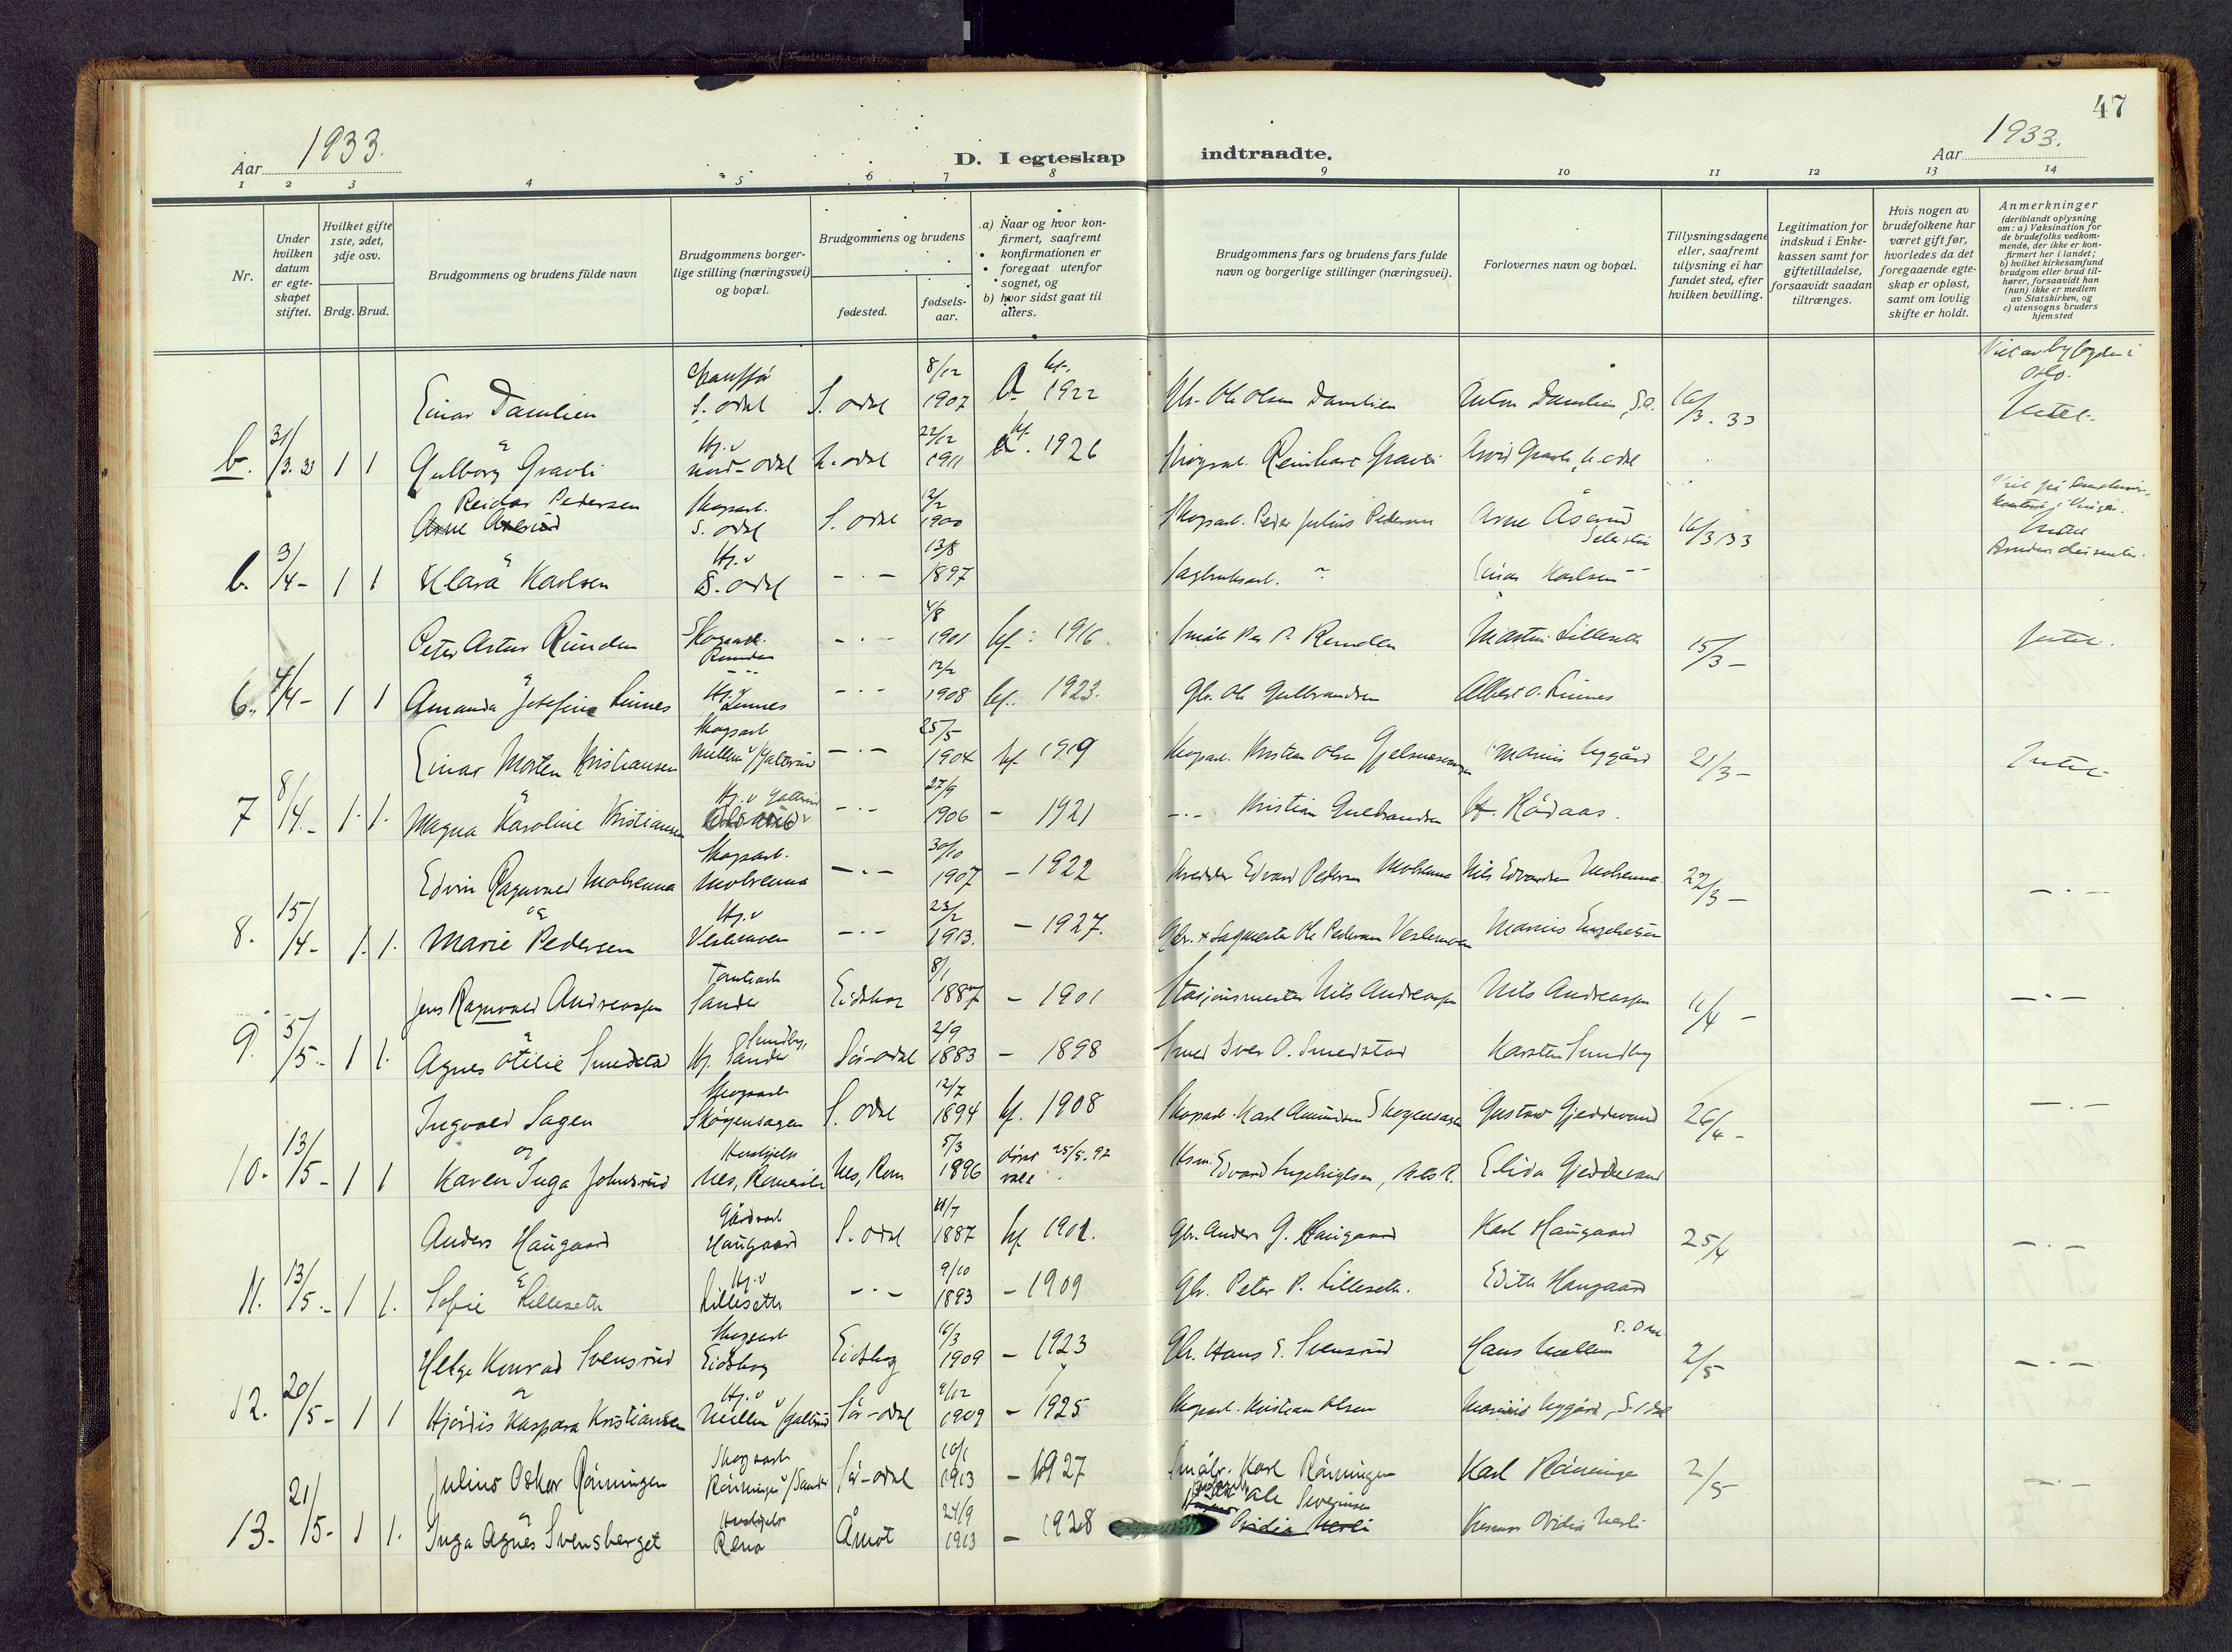 47
Aar 1933.
D. I egteskap indtraadte.
Aar 1933.
1 2 3 4 5 6 7 8 9 10 11 12 13 14
Nr.
Under hvilken datum er egte-skapet stiftet.
Hvilket gifte 1ste, 2det, 3dje osv.
Brdg. Brud.
Brudgommens og brudens fulde navn
Brudgommens borger-
lige stilling (næringsvei)
og bopæl.
Brudgommens og brudens
fødested.
fødsels-
aar.
a) Naar og hvor kon-
firmert, saafremt
konfirmationen er
foregaat utenfor
sognet, og
b) hvor sidst gaat til
alters.
Brudgommens fars og brudens fars fulde
navn og borgerlige stillinger (næringsvei).
Forlovernes navn og bopæl.
Tillysningsdagene
eller, saafremt
tillysning ei har
fundet sted, efter
hvilken bevilling.
Legitimation for
indskud i Enke-
kassen samt for
giftetilladelse,
forsaavidt saadan
tiltrænges.
Hvis nogen av
brudefolkene har
været gift før,
hvorledes da det
foregaaende egte-
skap er opløst,
samt om lovlig
skifte er holdt.
Anmerkninger
(deriblandt oplysning
om: a) Vaksination for
de brudefolks vedkom-
mende, der ikke er kon-
firmert her i landet;
b) hvilket kirkesamfund
brudgom eller brud til-
hører, forsaavidt han
(hun) ikke er medlem
av Statskirken, og
c) utensogns bruders
hjemsted
Einar Damlien S. odal S. odal 8/12 1907 1922 Gbr. Ole Olsen Damlien Anton Damlien, S.o. 16/3.33 Oslo. Intet.
b. 31/3.33 1 1 Gulborg Gravli Hj.v Nord-odal N. odal 22/12 1911 1926 Reinhard Gravli Arvid Gravli, N. odal
Reidar Pedersen Skogsarb. S. odal S. odal 12/2 1900 Skogsarb. Peder Julius Pedersen Arne Åserud 16/3 33
b. 3/4- 1 1 Klara Karlsen Hj.v S. odal -.- 13/8 1897 Sagbruksarb. Einar Karlsen
Peter Artur Runden Skogsarb. Runden -.- 4/8 1901 kf. 1916 Martin Lilleseth 15/3 - Intet.
6. 4/4- 1 1 Amanda Josefine Linnes Hj.v Linnes -.- 12/2 1908 kf. 1923. Gbr. Ole Gulbrandsen Albert O. Linnes
Einar Morten Kristiansen Skogsarb -.- 25/5 1904 kf 1919 Skogsarb. Kristian Olsen Marius Nygård 21/3- Intet
7 8/4.- 1. 1. Magna Karoline Kristiansen Hj.v -.- 27/9 1906 - 1921 -.- Kristian Gulbrandsen H. Rådaas.
Edvin Ragnvald Mobrenna Skogsarb. Mobrenna -.- 30/10 1907 - 1922 Edvard Pedersen Mobrenna Nils Edvardsen Mobrenna 22/3 - -.-
8. 15/4- 1. 1. Marie Pedersen Hj.v Veslemoen -.- 23/2 1913. - 1927. Gbr. & Sagmester Ole Pedersen Veslemoen Marius
Jens Ragnvald Andreassen Sander Eidskog 8/1 1887 - 1901 Stasjonsmester Nils Andreassen Nils Andreassen 11/4 - -.-
9. 5/5- 1 1. Agnes Otilie Smedstad Hj. Sander Sundby, Sør-odal 2/9 1883 - 1898 Smed Iver O. Smedstad Karsten Sundby
Ingvald Sagen Skogsarb Skogensagen S. odal 12/7 1894 kf. 1908 Skogsarb. Karl Amundsen Skogensagen Gustav Gjeddevand 26/4 - -.-
10. 13/5- 1 1 Karen Inga Johnsrud Nes, Romerike Nes, Rom 5/3 1896 Edvard Engebrigtsen, Elida Gjeddevand
Anders Haugaard Gårdsarb Haugaard S. odal 11/7 1887 kf 1901. Gbr. Anders G. Haugaard Karl Haugaard 25/4 -.-
11. 13/5.- 1 1. Sofie Lilleseth Hj.v Lilleseth -.- 9/10 1893 - 1909 Gbr. Peter P. Lilleseth. Edith Haugaard
Helge Konrad Svensrud Skogsarb Eidskog Eidskog 16/3 1909 - 1923 Gbr. Hans E. Svensrud Hans 2/5 -.-
12. 20/5- 1 1 Hjördis Kaspara Kristiansen Hj.v Sør-odal 9/12 1909 - 1925 Skogsarb. Kristian Olsen Marius Nygård, S. odal
Julius Oskar Rönningen Skogsarb Sør-odal 10/1 1913 - 1927 Småbr. Karl Rönningen Karl Rönningen 2/5 -.-
13. 21/5- 1 1. Inga Agnes Svensberget Rena Åmot 24/9 1913 - 1928 Ole Severinsen Ovidia Nerli Ovidia Nerli